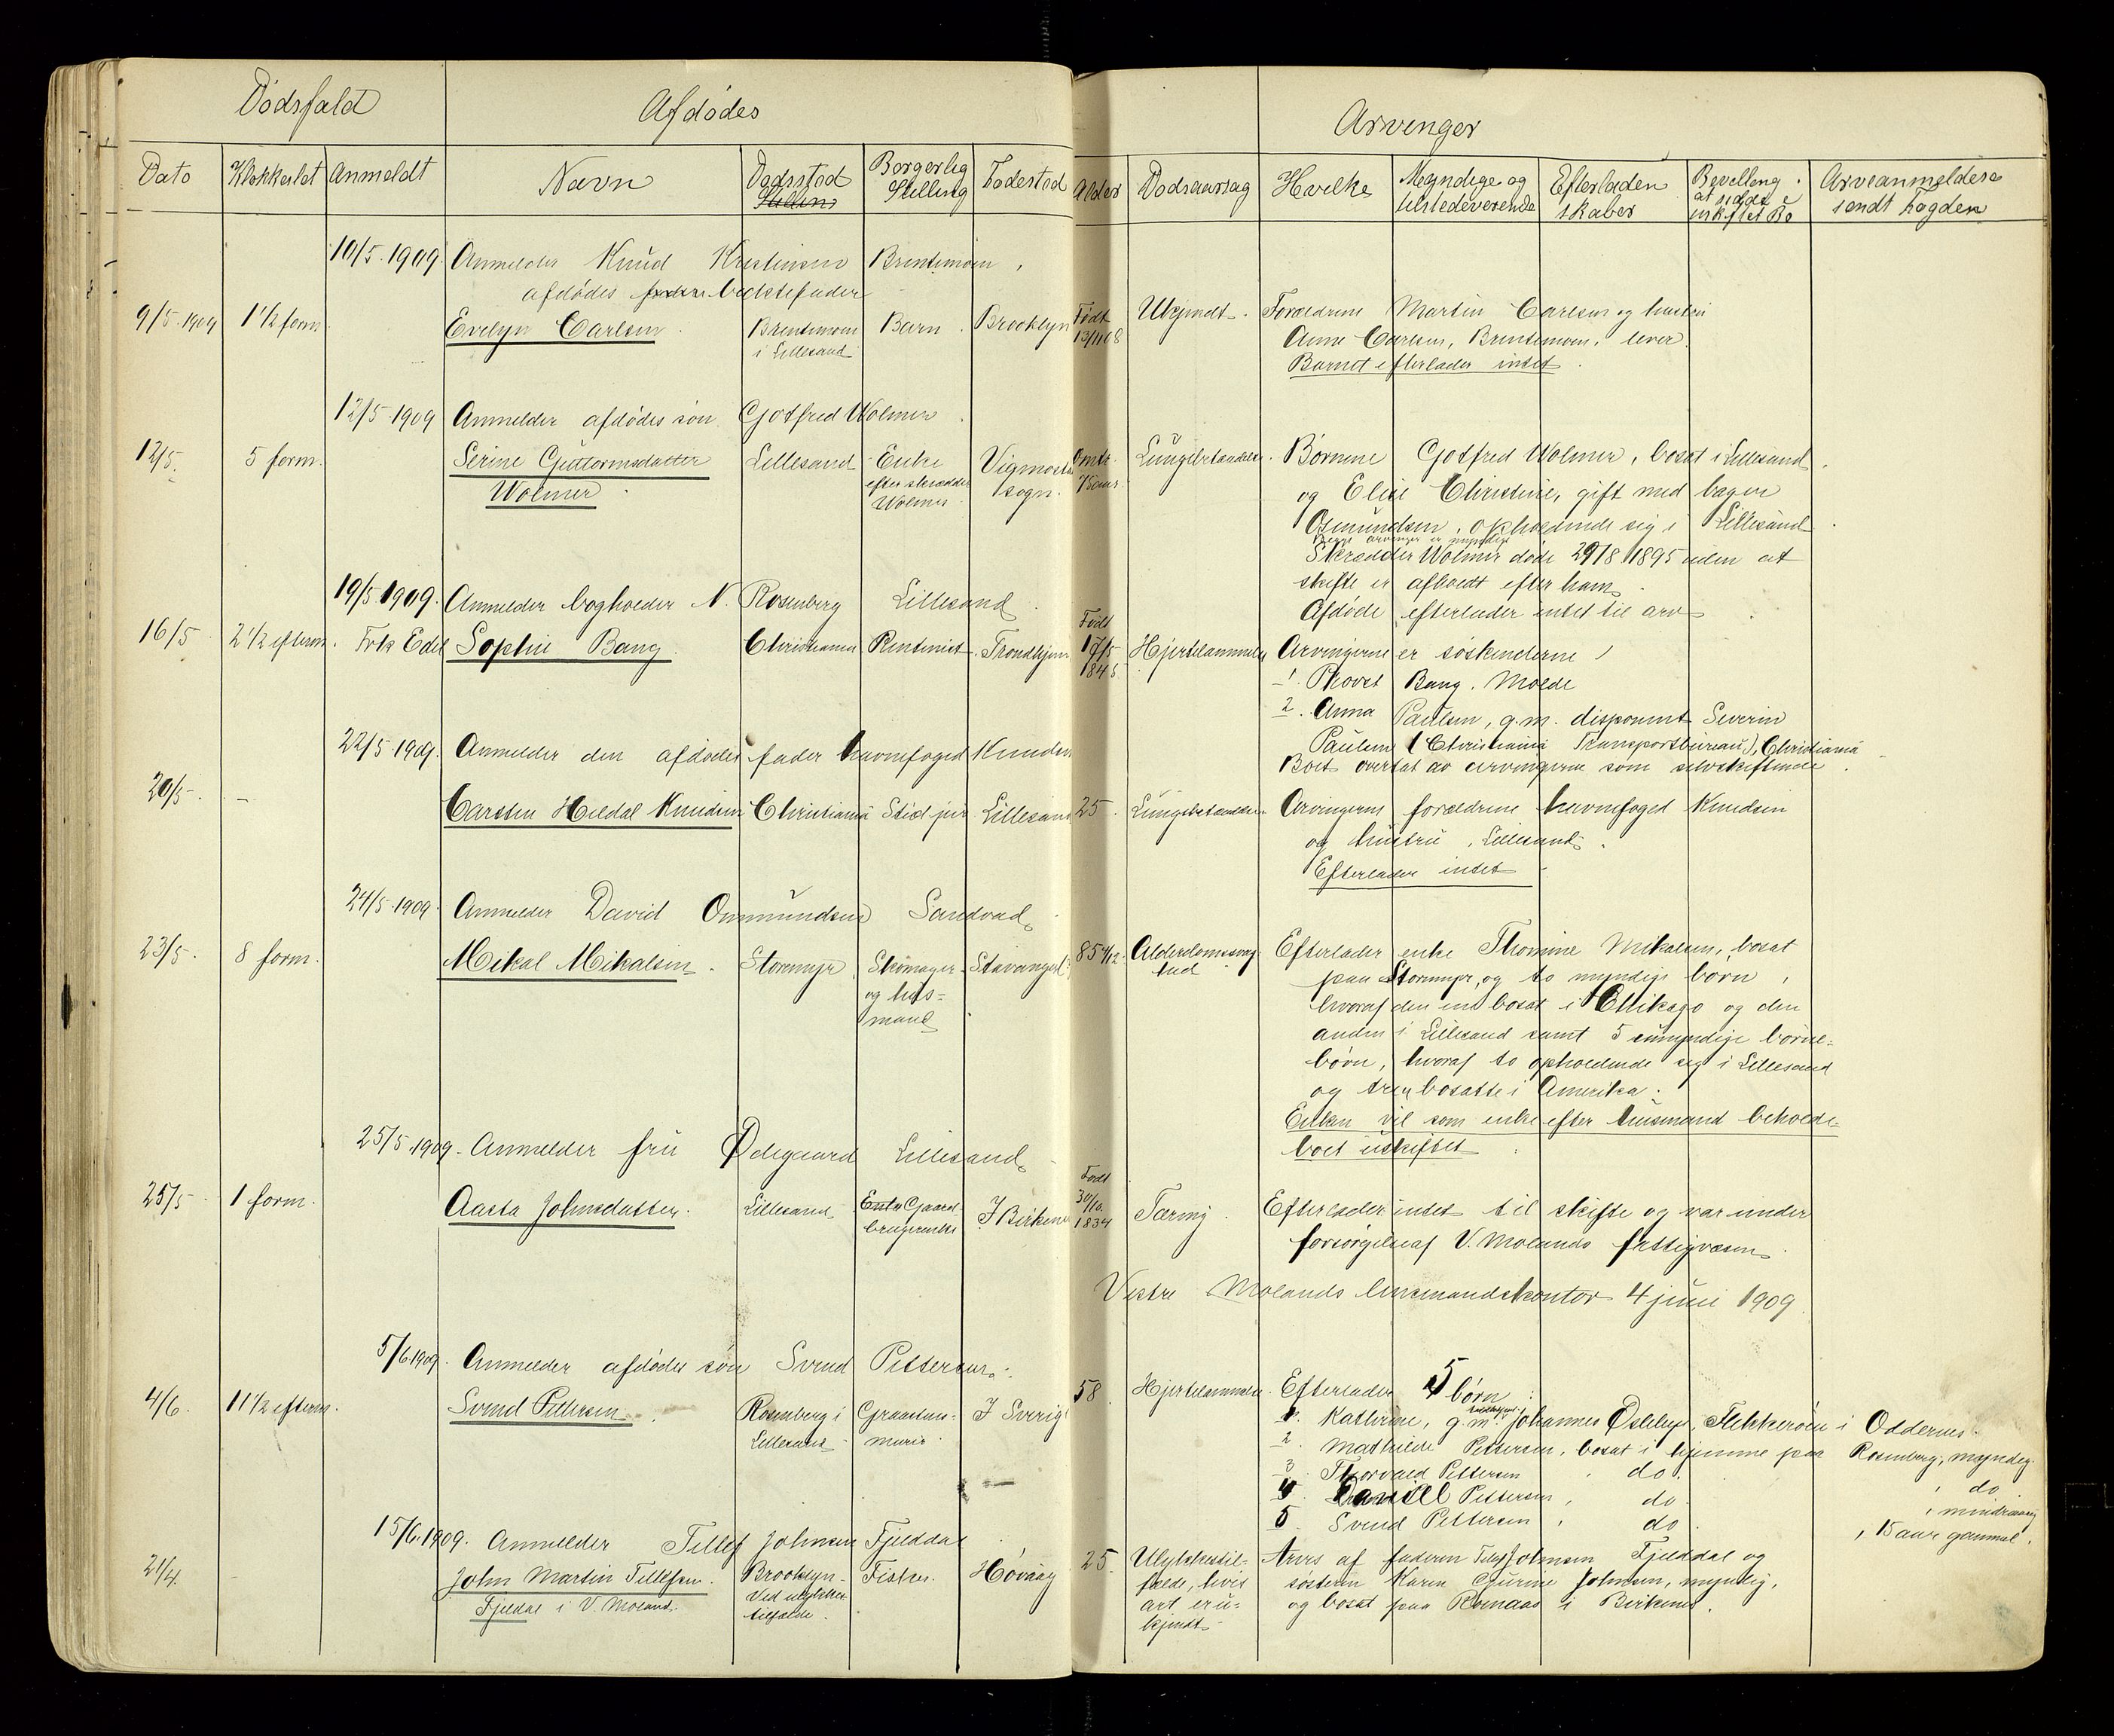 Dødsfald
Afdødes
Arvinger
Dato
Klokkeslet
Anmeldt
Navn
Dødssted
Stilling
Borgerlig
Stilling
Fødested
Alder
Dødsaarsag
Hvilke
Myndige og
tilstedeverende
Efterladen
skaber
Bevilling
at sidde
uskiftet Bo
Arveanmeldese
sendt Fogden
10/5 1909 Anmelder Knud Kristensen Brentemoen,
afdødes bedstefader
9/5 1909 1 1/2 form. Evelyn Carlsen Brentemoen Barn. Brooklyn Født Ukjendt. Forældrene Martin Carlsen og hustru
i Lillesand 13/11 08 Anne Carlsen, Brentemoen, lever.
Barnet efterlader intet.
12/5 1909 Anmelder afdødes søn Gotfred Wolmer
12/5. 5 form. Serine Guttormsdatter Lillesand Enke Vigmosta Lungebetændelse. Børnene Gotfred Wolmer, bosat i Lillesand
Wolmer efter skrædder sogn. og Elise Christine, gift med bager
Wolmer Osmundsen, opholdende sig i Lillesand.
Begge arvinger er myndige
Skrædder Wolmer døde 29/8 1895 uden at
skifte er afholdt efter ham.
Afdøde efterlader intet til arv
19/5 1909. Anmelder bogholder N. Rosenberg Lillesand.
16/5 2 1/2 efterm. Frk Edel Sophie Bang. Christiania Rentenist. Trondhjem Født 17/5 1845 Hjertelammelse Arvingerne er søskenderne
1. Provst Bang. Molde
2. Anna Paulsen, g.m. disponent Severin
Paulsen (Christiania Transportbureau), Christiania
Boet overtat av arvingerne som selvskiftende.
22/5 1909. Anmelder den afdødes fader havnefoged Knudsen
20/5 - Carsten Hildal Knudsen Christiania Stud jur Lillesand 25. Lungebetændelse. Arvingerne forældrene havnefoged Knudsen
og hustru, Lillesand.
Efterlader intet
24/5 1909. Anmelder David Ommundsen Sandvad
23/5. 8 form. Mikal Mikalsen. Storemyr Skomager Stavanger. 85 Alderdomssvag Efterlader enke Thomine Mikalsen, bosat
og hus= hed paa Storemyr, og to myndige børn,
mand hvoraf den ene bosat i Chikago og den
anden i Lillesand samt 5 umyndige børne=
børn, hvoraf to opholdende sig i Lillesand
og tre bosatte i Amerika.
Enken vil som enke efter husmand beholde
boet uskiftet.
25/5 1909. Anmelder fru Ødegaard Lillesand
25/5 1 form. Aasta Johnsdatter. Lillesand Gaard= I Birkenes Født 30/10 1834 Tæring. Efterlader intet til skifte og var under
brugerenke forsørgelse af V. Molands fattigvæsen.
Vestre Molands lensmandskontor 4 juni 1909.
5/6 1909. Anmelder afdødes søn Svend Pettersen.
4/6. 11 1/2 efterm. Svend Pettersen. Rosenberg i Graasten= I Sverige 58 Hjertelammelse. Efterlader 5 børn:
Lillesand murer. 1. Kathrine, g.m. Johannes Flekkerøen i Oddernes.
2. Mathilde Pettersen, bosat i hjemme paa Rosenberg, myndig.
3. Thorvald Pettersen do. do
4. Daniel Pettersen, do. mindreaarig
5. Svend Pettersen, do. 15 aar gammel.
15/6. 1909. Anmelder Tellef Johnsen Fjelddal
21/4. John Martin Tellefsen. Brooklyn Fisker. Høvaag 25. Ulykkestil= Arves af faderen Tellef Johnsen Fjelddal og
Fjeldal i V. Moland. Ved ulykkes= fælde, hvis søsteren Karen Gurine Johnsen, myndig,
tilfælde. art er u= og bosat paa i Birkenes.
kjendt